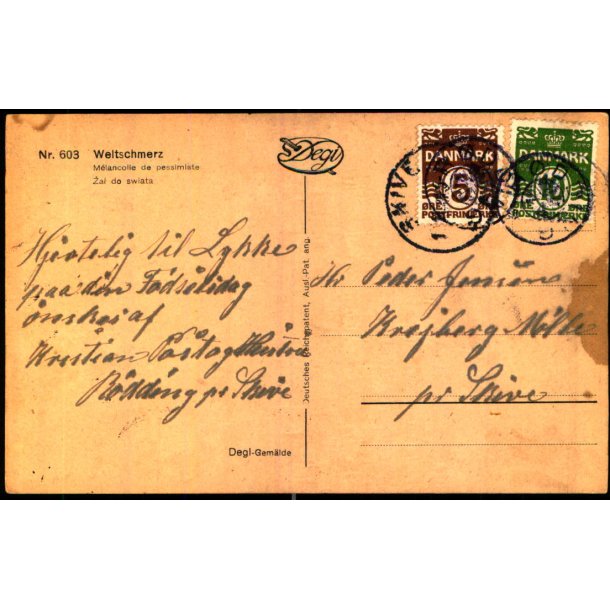 Nr. 603 Weltschmerz
Mélancolie de pessimiste
Żal do swiata
Degi
DANMARK
5
ØRE ØRE
POSTFRIMÆRKE
DANMARK
10
ØRE ØRE
POSTFRIMÆRKE
SKIVE
SKIVE
Hjertelig til Lykke
paa din Födselsdag
önskes af
Kristian Postag
Rödding pr Skive
Deutsches Reichspatent, Ausl.-Pat. ang.
Hr Peder Jensen
Krejberg Mölle
pr Skive
Degi-Gemälde